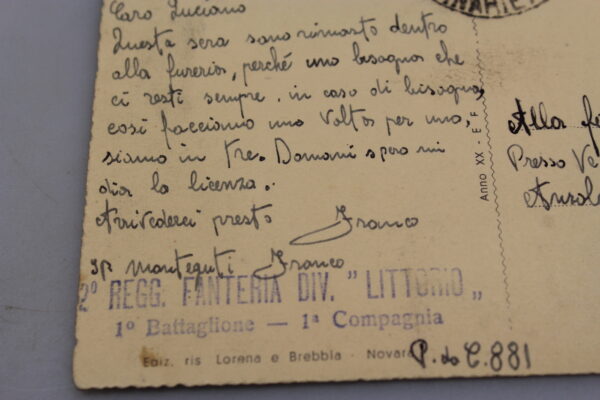 Caro Luciano
Questa sera sono rimasto dentro
alla fureria, perché uno bisogna che
ci resti sempre. in caso di bisogno,
così facciamo una volta per uno,
siamo in tre. Domani spero mi
dia la licenza..
Arrivederci presto Franco
Franco
2º REGG. FANTERIA DIV. "LITTORIO„
1º Battaglione — 1ª Compagnia
Ediz. ris Lorena e Brebbia - Novara
P. da C. 881
Anno XX - E F
Alla
Presso